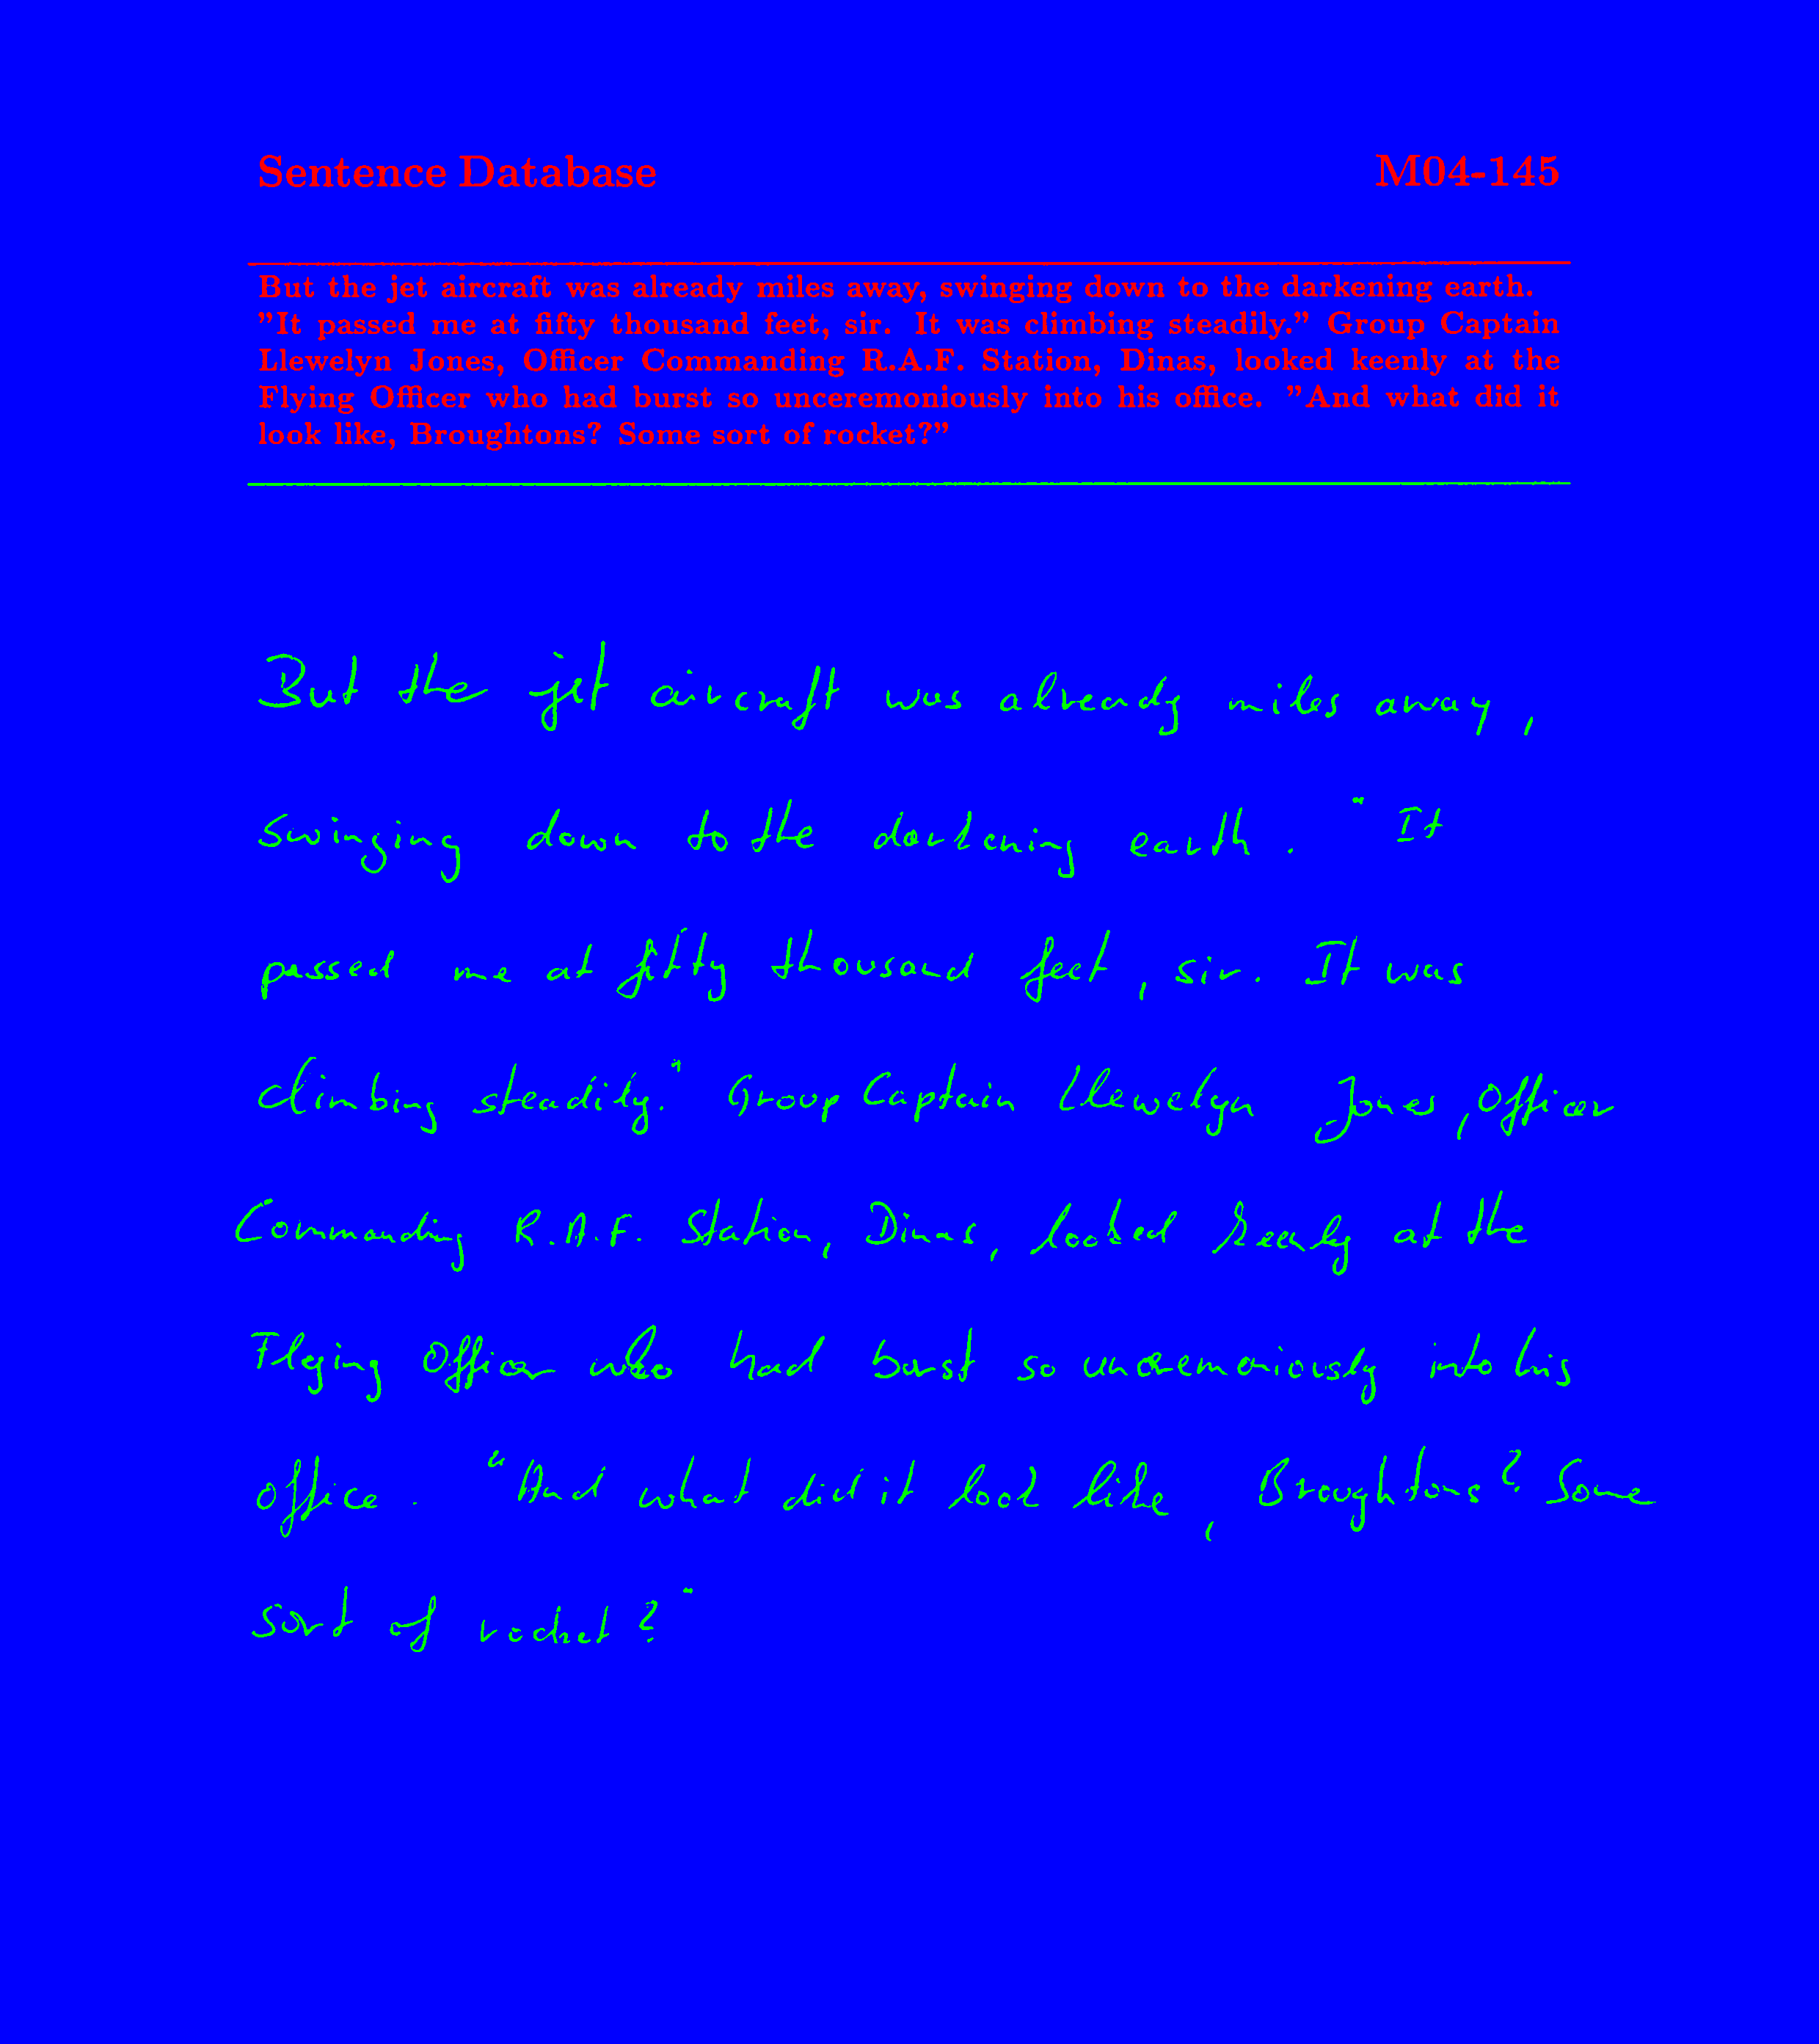 Sentence Database M04-145
But the jet aircraft was already miles away, swinging down to the darkening earth.
"It passed me at fifty thousand feet, sir. It was climbing steadily." Group Captain
Llewelyn Jones, Officer Commanding R.A.F. Station, Dinas, looked keenly at the
Flying Officer who had burst so unceremoniously into his office. "And what did it
look like, Broughtons? Some sort of rocket?"
But the jet aircraft was already miles away,
swinging down to the darkening earth. "It
passed me at fifty thousand feet, sir. It was
climbing steadily." Group Captain Llewelyn Jones, Officer
Commanding R.A.F. Station, Dinas, looked keenly at the
Flying Officer who had burst so unceremoniously into his
office. "And what did it look like, Broughtons? Some
sort of rocket?"